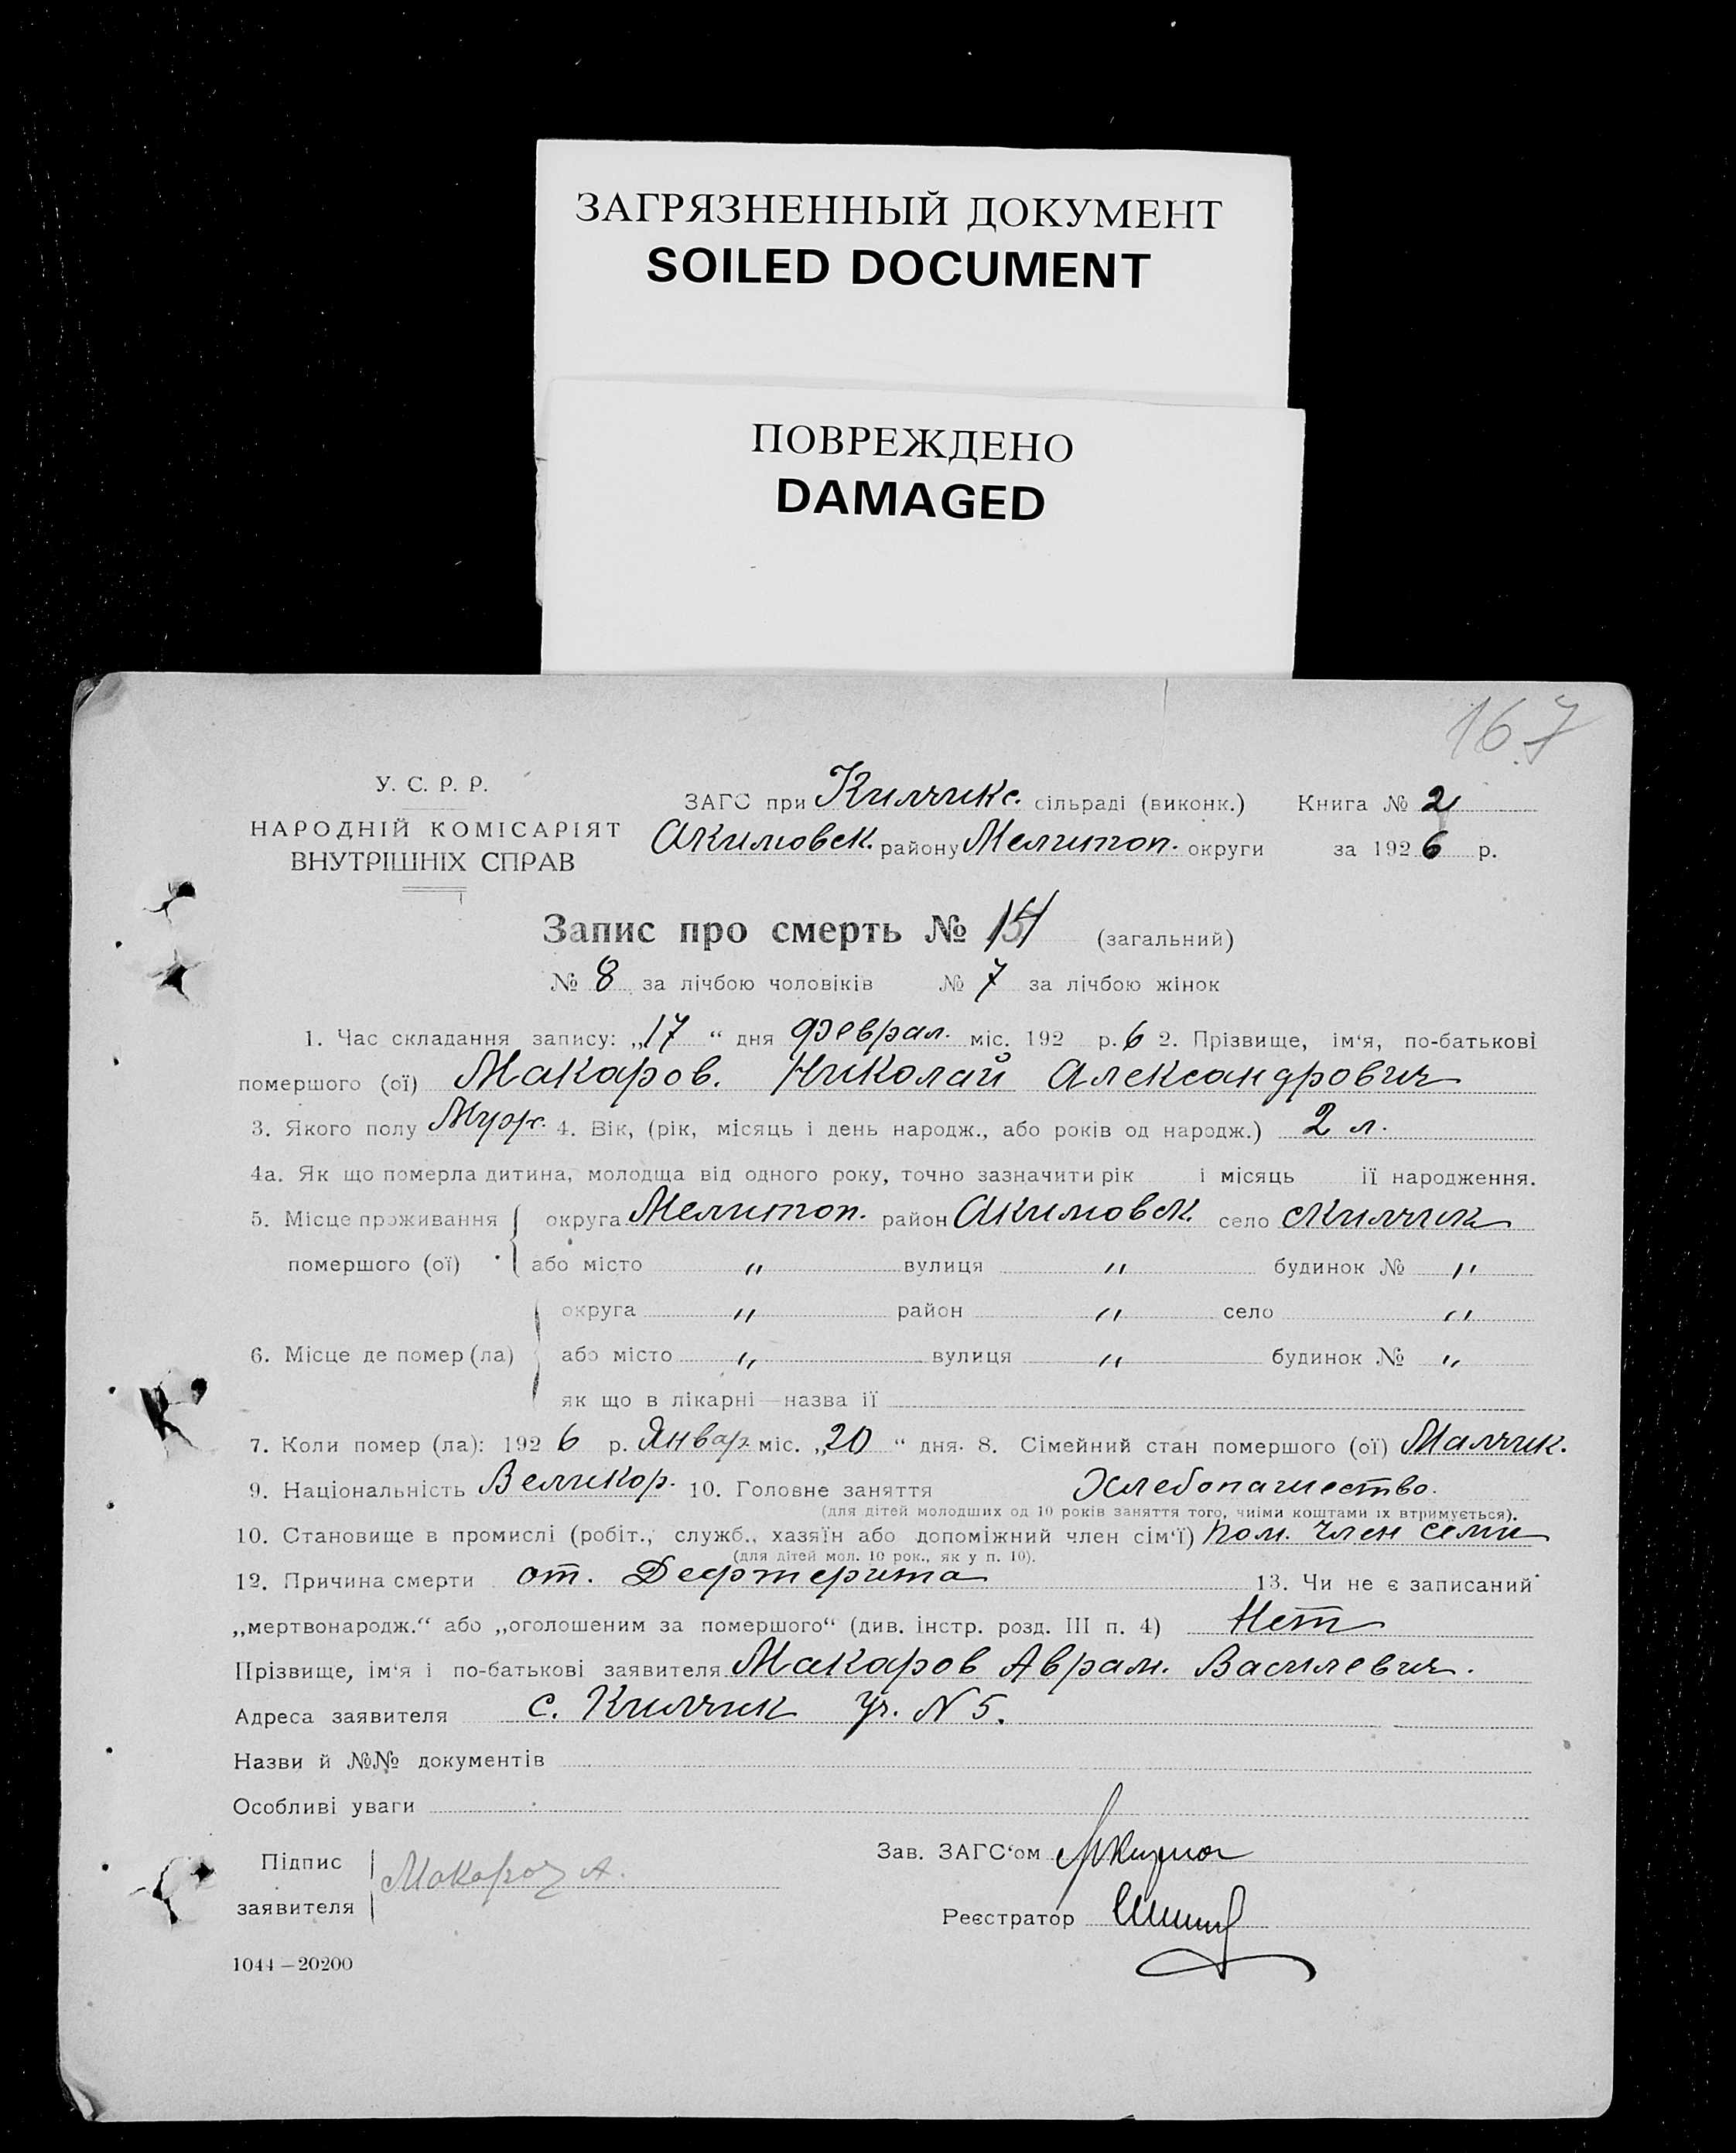 ЗАГРЯЗНЕННЫЙ ДОКУМЕНТ
SOILED DOCUMENT
ПОВРЕЖДЕНО
DAMAGED
167
У. С. Р. Р.
НАРОДНІЙ КОМІСАРІЯТ
ВНУТРІШНІХ СПРАВ
ЗАГС при Килчикс. сільраді (виконк.) Книга № 2
Акимовск. району Мелитоп. округи за 1926 р.
Запис про смерть № (загальний)
№ 8 за лічбою чоловіків № 7 за лічбою жінок
1. Час складання запису: „17“ дня Феврал. міс. 192 р. 6 2. Прізвище, ім‘я, по-батькові
помершого (ої) Макаров. Николай Александрович
3. Якого полу Муж. 4. Вік, (рік, місяць і день народж., або років од народж.) 2 л.
4а. Як що померла дитина, молодща від одного року, точно зазначити рік і місяць ії народження.
5. Місце проживання округа Мелитоп. район Акимовск. село Килчик
помершого (ої) або місто " вулиця " будинок № "
округа " район " село "
6. Місце де помер (ла) або місто " вулиця " будинок № "
як що в лікарні—назва ії
7. Коли помер (ла): 1926 р. Январ. міс. „20“ дня. 8. Сімейний стан помершого (ої) Малчик.
9. Національність Великор. 10. Головне заняття Хлебопашество.
(для дітей молодших од 10 років заняття того, чиіми коштами іх втримується).
10. Становище в промислі (робіт., служб., хазяїн або допоміжний член сім‘ї) Пом. Член семи
(для дітей мол. 10 рок., як у п. 10).
12. Причина смерти от. Дефтерита 13. Чи не є записаний
„мертвонародж.“ або „оголошеним за помершого“ (див. інстр. розд. III п. 4) Нет
Прізвище, ім‘я і по-батькові заявителя Макаров Аврам. Василевич.
Адреса заявителя с. Килчик Уч. N 5.
Назви й №№ документів
Особливі уваги
Підпис Макаров А. Зав. ЗАГС‘ом
заявителя Реєстратор
1044—20200